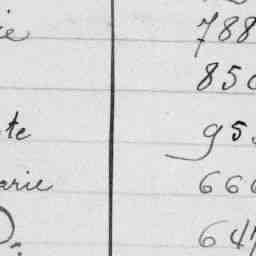 ie 788
850
te 95
arie 666
D. 647